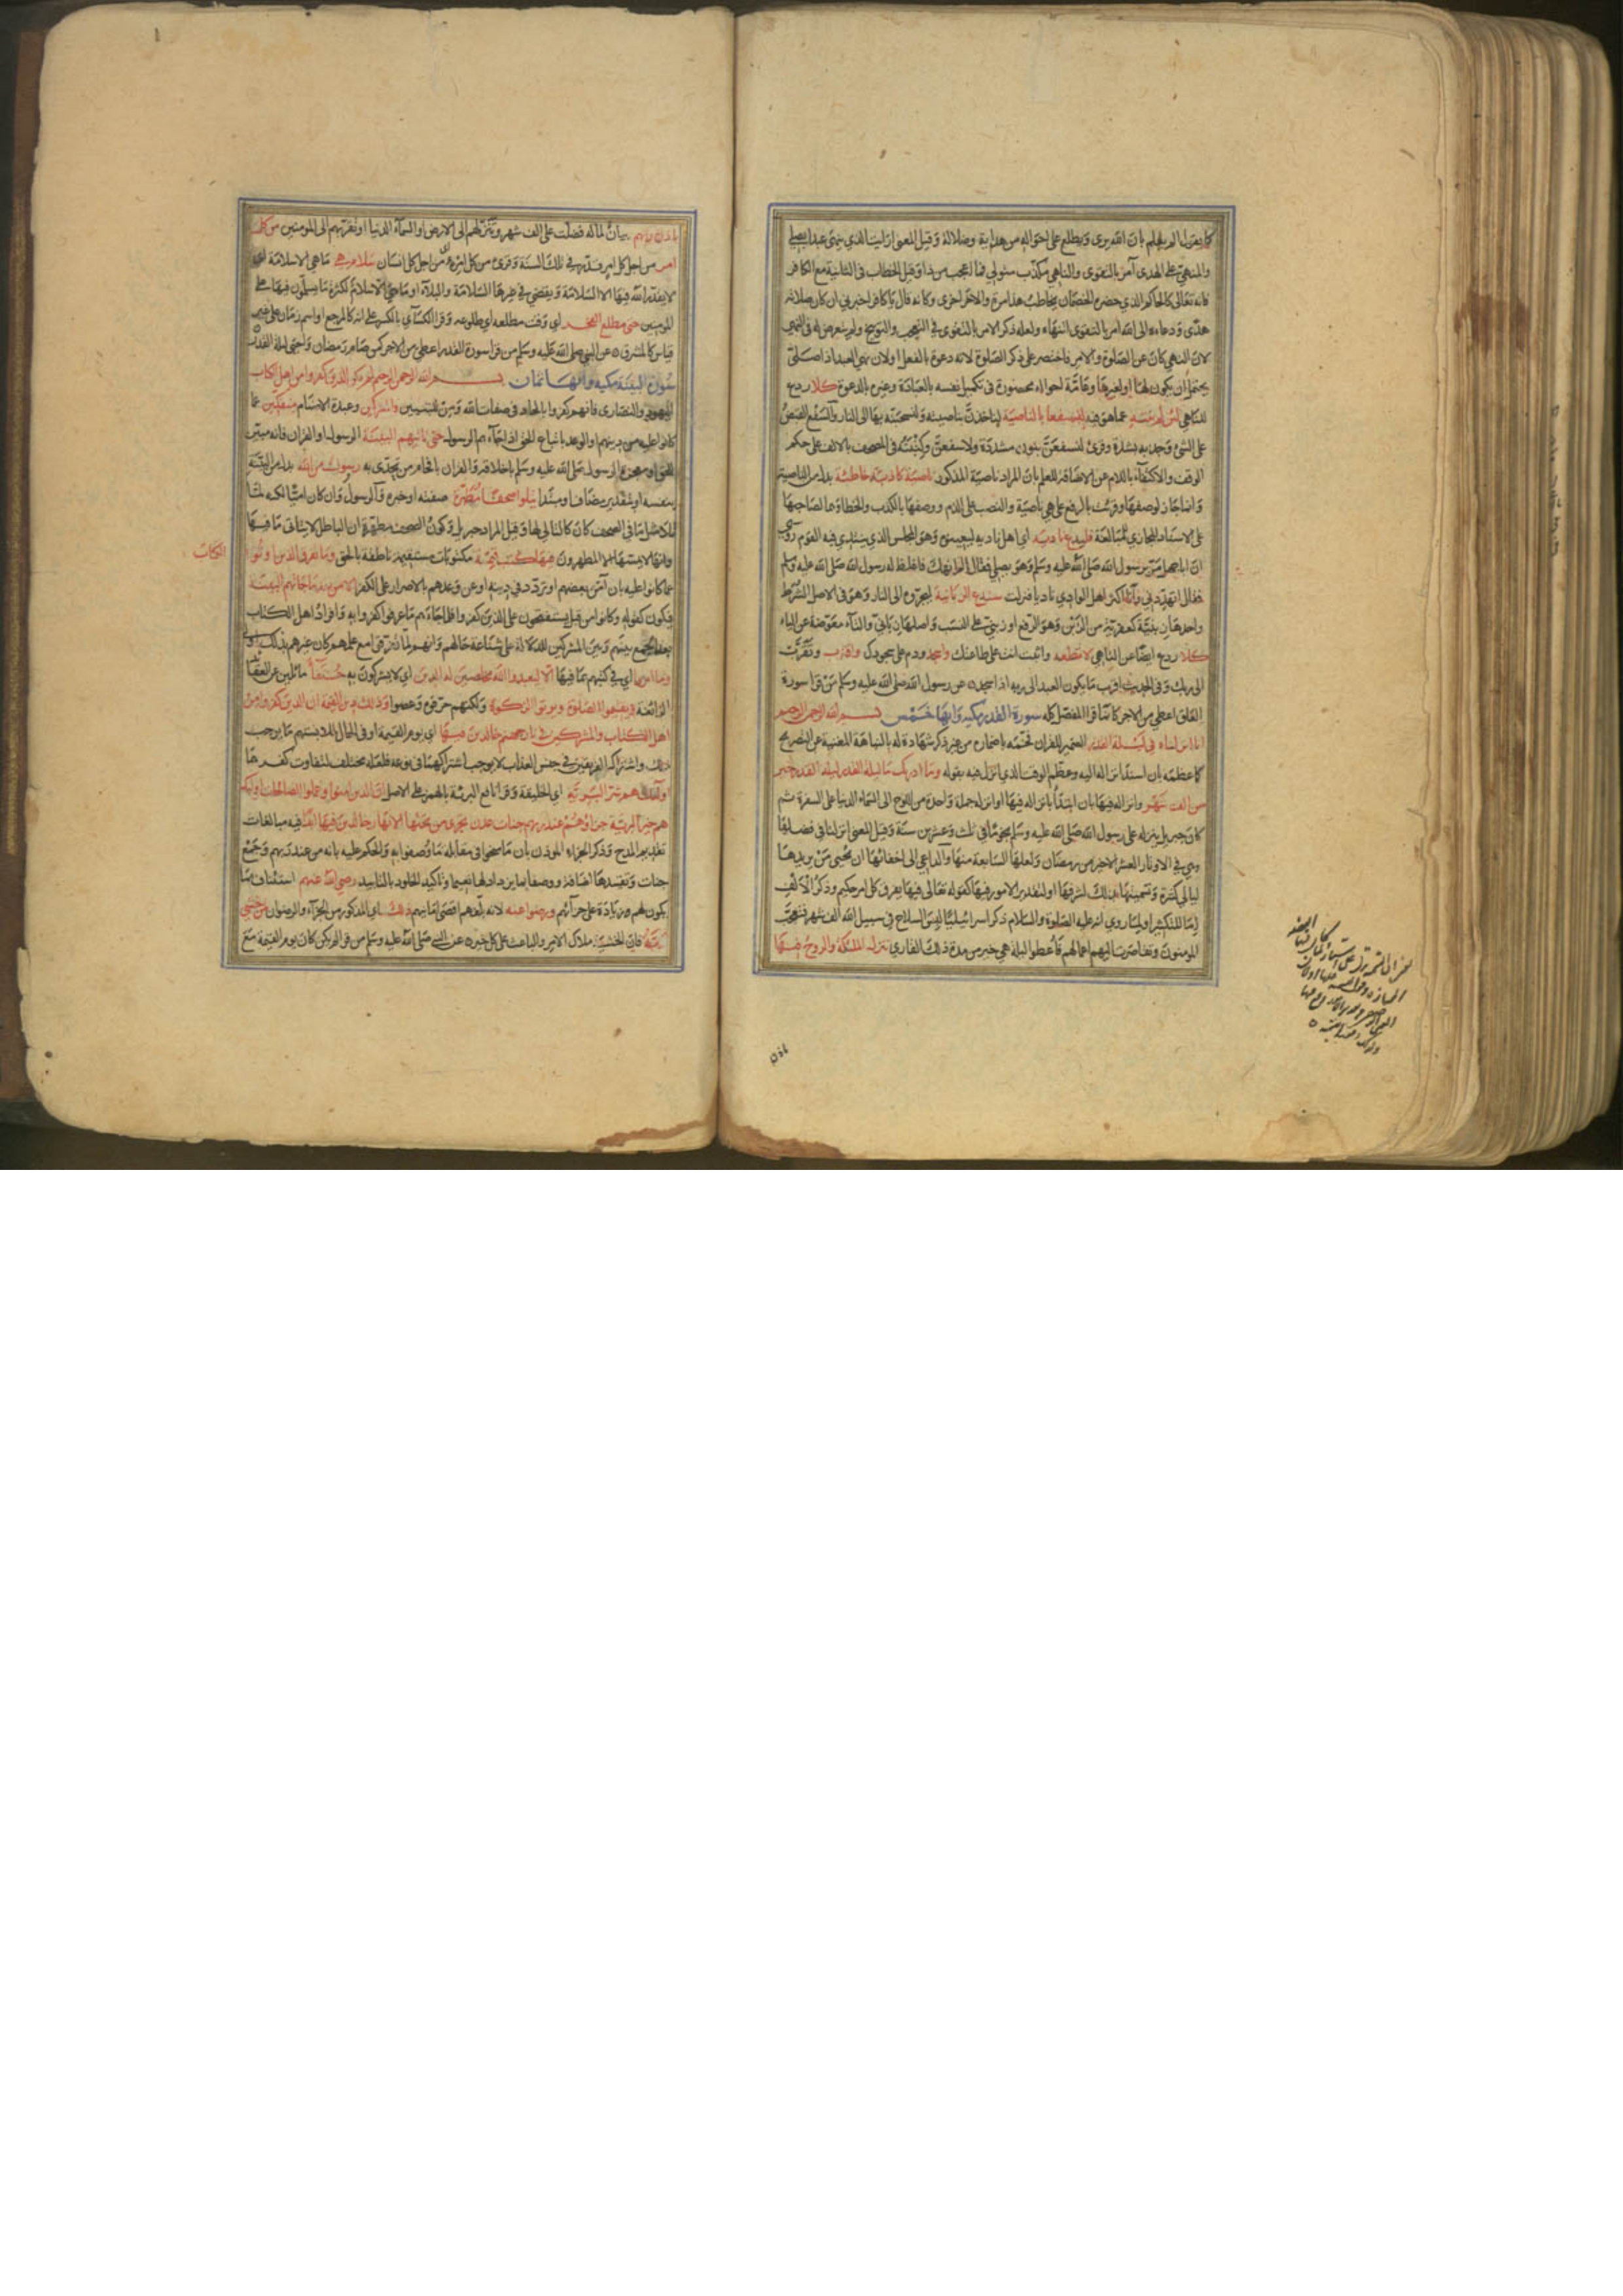 كما يقول الم يعلم بان الله يرى ويطلع على احواله من هدايته وضلاله وقيل المعنى ارايت الذي ينهى عبدا يصلي
والمنهي على الهدى آمر بالتقوى والناهي مكذب متولي فما اعجب من ذا وقيل الخطاب في الثانية مع الكافر
فانه تعالى كالحاكم الذي حضره الخصمان يخاطب هذا مرة والاخر اخرى وكانه قال يا كافر اخبرني ان كان صلاته
هدى ودعاءه الى الله امر بالتقوى اتنهاه ولعله ذكر الامر بالتقوى في التعجب والتوبيخ ولم يتعرض له في النهي
لان النهي كان عن الصلوة والامر فاختصر على ذكر الصلوة لانه دعوة بالفعل اولان نهي العبد اذا صلى
يحتمل ان يكون لها ولغيرها وعامة احواله محصورة في تكميل نفسه بالعبادة وغيره بالدعوة كلا ردع
للناهي لئن لم ينته عما هو فيه لنسفعا بالناصية لناخذن بناصيته ولنسحبنه بها الى النار والسفع القبض
على الشئ وجذبه بشدة وقرئ لنسفعن بنون مشددة ولاسفعن وكتبته في المصحف بالالف على حكم
الوقف والاكتفاء باللام عن الاضافة للعلم بان المراد ناصية المذكور ناصية كاذبة خاطئة بدل من الناصية
وانما جاز لوصفها وقرئت بالرفع على هي ناصية والنصب على الذم ووصفها بالكذب والخطا وهما لصاحبها
على الاسناد المجازي للمبالغة فليدع ناديه اي اهل ناديه ليعينوه وهو المجلس الذي ينتدي فيه القوم روي
ان ابا جهل مر برسول الله صلى الله عليه وسلم وهو يصلي فقال الم انهك فاغلظ له رسول الله صلى الله عليه وسلم
فقال اتهددني وانا اكثر اهل الوادي ناديا فنزلت سندع الزبانية ليجروه الى النار وهو في الاصل الشرط
واحدها زبنية كعفرية من الزبن وهو الدفع او زبني على النسب واصلها زباني والتاء معوضة عن الياء
كلا ردع ايضا عن الناهي لا تطعه واثبت انت على طاعتك واسجد ودم على سجودك واقترب وتقرب
الى ربك وفي الحديث اقرب ما يكون العبد الى ربه اذا سجد ٥ عن رسول الله صلى الله عليه وسلم من قرا سورة
العلق اعطي من الاجر كانما قرا المفصل كله سورة القدر مكيه وآيها خمس بسم الله الرحمن الرحيم
انا انزلناه في ليلة القدر الضمير للقران فخمه باضماره من غير ذكر شهادة له بالنباهة المغنية عن التصريح
كما عظمه بان اسند انزاله اليه وعظم الوقت الذي انزل فيه بقوله وما ادريك ما ليلة القدر ليلة القدر خير
من الف شهر وانزاله فيها بان ابتدأ بانزاله فيها او انزله جملة واحدة من اللوح الى السماء الدنيا على السفرة ثم
كان جبريل ينزله على رسول الله صلى الله عليه وسلم نجوما في ثلث وعشرين سنة وقيل المعنى انزلنا في فضلها
وهي في الاوتار العشر الاخير من رمضان ولعلها السابعة منها والداعي الى اخفائها ان يحيى من يريدها
ليالي كثيرة وتسميتها بذلك لشرفها او لتقدير الامور فيها كقوله تعالى فيها يفرق كل امر حكيم وذكر الالف
اما للتكثير او لما روي انه عليه الصلوة والسلام ذكر اسرائيليا لبس السلاح في سبيل الله الف شهر فتعجب
المومنون وتقاصرت اليهم اعمالهم فاعطوا ليلة هي خير من مدة ذلك الغازي تنزل الملئكة والروح فيها
باذن
باذن ربهم بيان لما له فضلت على الف شهر وتنزلهم الى الارض او السماء الدنيا او تقربهم الى المومنين من كل
امر من اجل كل امر قدر في تلك السنة وقرئ من كل امرئ اي من اجل كل انسان سلام هي ما هي الا سلامة اي
لا يقدر الله فيها الا السلامة ويقضي في غيرها السلامة والبلاء او ما هي الا سلام لكثرة ما يسلمون فيها على
المومنين حتى مطلع الفجر اي وقت مطلعه اي طلوعه وقرا الكسائي بالكسر على انه كالمرجع او اسم زمان على غير
قياس كالمشرق ٥ عن النبي صلى الله عليه وسلم من قرا سورة القدر اعطي من الاجر كمن صام رمضان واحيى ليلة القدر
سورة البينة مكيه وآيها ثمان بسم الله الرحمن الرحيم لم يكن الذين كفروا من اهل الكتاب
اليهود والنصارى فانهم كفروا بالالحاد في صفات الله ومن للتبيين والمشركين وعبدة الاصنام منفكين عما
كانوا عليه من دينهم او الوعد باتباع الحق اذا جاءهم الرسول حتى تاتيهم البينة الرسول او القران فانه مبين
للحق او معجزة الرسول صلى الله عليه وسلم باخلاقه والقران بافحامه من تحدى به رسول من الله بدل من البينة
بنفسه او بتقدير مضاف او مبتدا يتلو صحفا مطهرة صفته او خبره والرسول وان كان اميا لكنه لما
تلا مثل ما في الصحف كان كالتالي لها وقيل المراد جبريل وكون الصحف مطهرة ان الباطل لا ياتي ما فيها
وانها لا يمسها الا المطهرون فيها كتب قيمة مكتوبات مستقيمة ناطقة بالحق وما تفرق الذين اوتوا
الكتاب
عما كانوا عليه بان آمن بعضهم او تردد في دينه او عن وعدهم بالاصرار على الكفر الا من بعد ما جاءتهم البينة
فيكون كقوله وكانوا من قبل يستفتحون على الذين كفروا فلما جاءهم ما عرفوا كفروا به وافراد اهل الكتاب
بعد الجمع بينهم وبين المشركين للدلالة على شناعة حالهم وانهم لما تفرقوا مع علمهم كان غيرهم بذلك اولى
وما امروا اي في كتبهم بما فيها الا ليعبدوا الله مخلصين له الدين اي لا يشركون به حنفاء مائلين عن العقائد
الزائغة ويقيموا الصلوة ويؤتوا الزكوة ولكنهم حرفوه وعصوا وذلك دين القيمة ان الذين كفروا من
اهل الكتاب والمشركين في نار جهنم خالدين فيها اي يوم القيمة او في الحال لملابستهم ما يوجب
ذلك واشتراك الفريقين في جنس العذاب لا يوجب اشتراكهما في نوعه فلعله مختلف لتفاوت كفرهما
اولئك هم شر البرية اي الخليقة وقرا نافع البريئة بالهمز على الاصل ان الذين امنوا وعملوا الصالحات اولئك
هم خير البرية جزاؤهم عند ربهم جنات عدن تجري من تحتها الانهار خالدين فيها ابدا فيه مبالغات
تقديم المدح وذكر الجزاء الموذن بان ما منحوا في مقابلة ما وصفوا به والحكم عليه بانه من عند ربهم وجمع
جنات وتقييدها اضافة ووصفا بما يزداد لها نعيما وتاكيد الخلود بالتابيد رضي الله عنهم استئناف بما
يكون لهم زيادة على جزائهم ورضوا عنه لانه بلغهم اقصى امانيهم ذلك اي المذكور من الجزاء والرضوان لمن خشي
ربه فان الخشية ملاك الامر والباعث على كل خير ٥ عن النبي صلى الله عليه وسلم من قرا لم يكن كان يوم القيمة مع